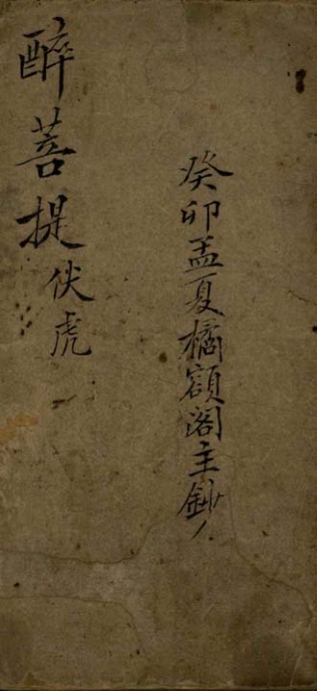 癸卯孟夏橘額閣主鈔
醉菩提伏虎